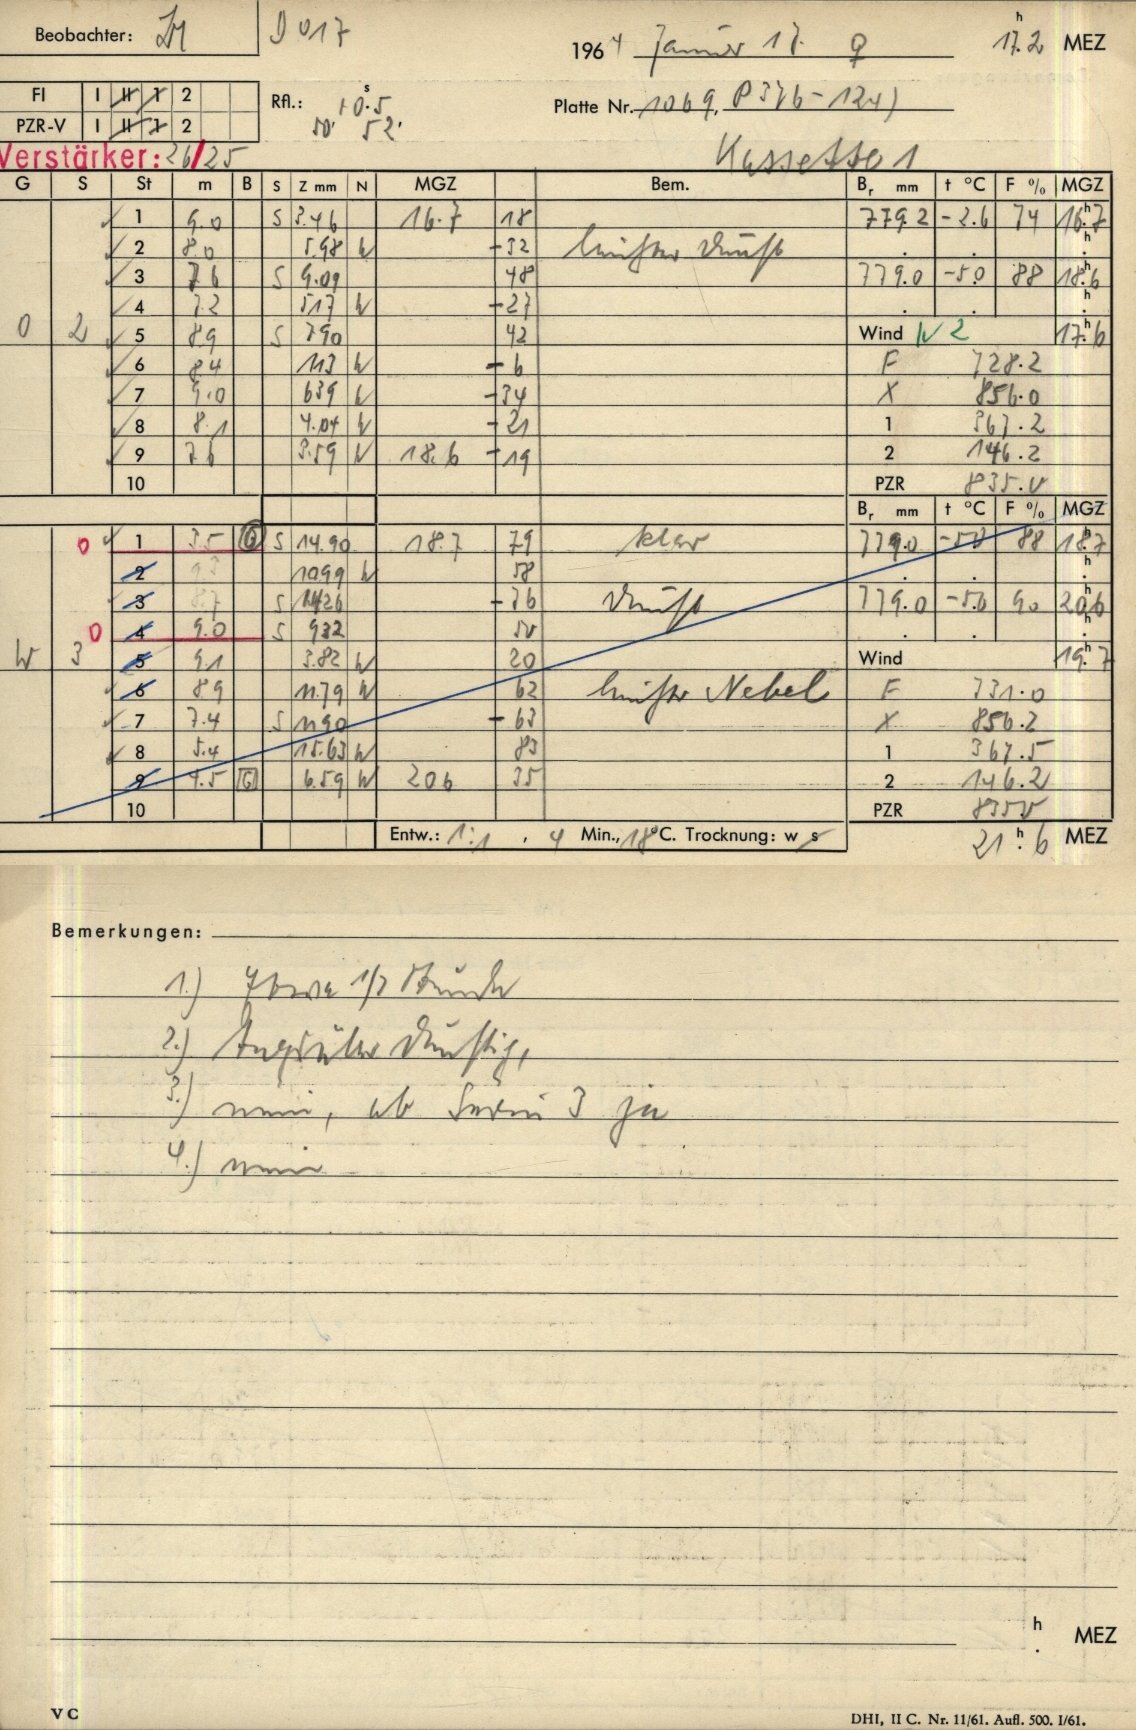 Beobachter: D 017
1964 Januar 17. ♀ 17.2 h MEZ
FI I II 1 2
PZR-V I II 1 2
Rfl.: +0.5 s
50' 52'
Platte Nr. 1069, P376-124)
Verstärker: 26/25
Kassette 1
G S St m B S Z mm N MGZ Bem. Br mm t °C F % MGZ
1 9.0 S 3.46 16.7 18 779.2 -2.6 74 16.7 h
2 8.0 5.98 W -32 h
3 7.6 S 9.09 48 779.0 -5.0 88 18.6 h
4 7.2 5.17 W -27 h
O 2 5 8.9 S 7.90 42 Wind W 2 17.6 h
6 8.4 1.13 W -6 F 728.2
7 9.0 6.39 W -34 X 856.0
8 8.1 4.04 W -21 1 367.2
9 7.6 3.59 W 18.6 -19 2 146.2
10 PZR 835.0
Br mm t °C F % MGZ
0 1 3.5 G S 14.90 18.7 79 klar 779.0 -5.0 88 18.7 h
2 10.99 W 58 h
3 8.7 S 14.26 -76 Dunst 779.0 -5.6 90 20.6 h
0 4 9.0 S 9.32 50 h
W 3 5 9.1 3.82 W 20 Wind 19.7 h
6 8.9 11.79 W 62 Nebel F 731.0
7 7.4 S 11.90 -63 X 856.2
8 5.4 15.63 W 83 1 367.5
9 4.5 G 6.59 W 20.6 35 2 146.2
10 PZR 835.0
Entw.: 1:1, 4 Min., 18°C. Trocknung: w s 21.6 h MEZ
Bemerkungen:
1.) Etwa 1/2 Stunde
2.) dunstig,
3.) nein, ab Serie 3 ja
4.) nein
h
. MEZ
V C
DHI, II C. Nr. 11/61. Aufl. 500. I/61.